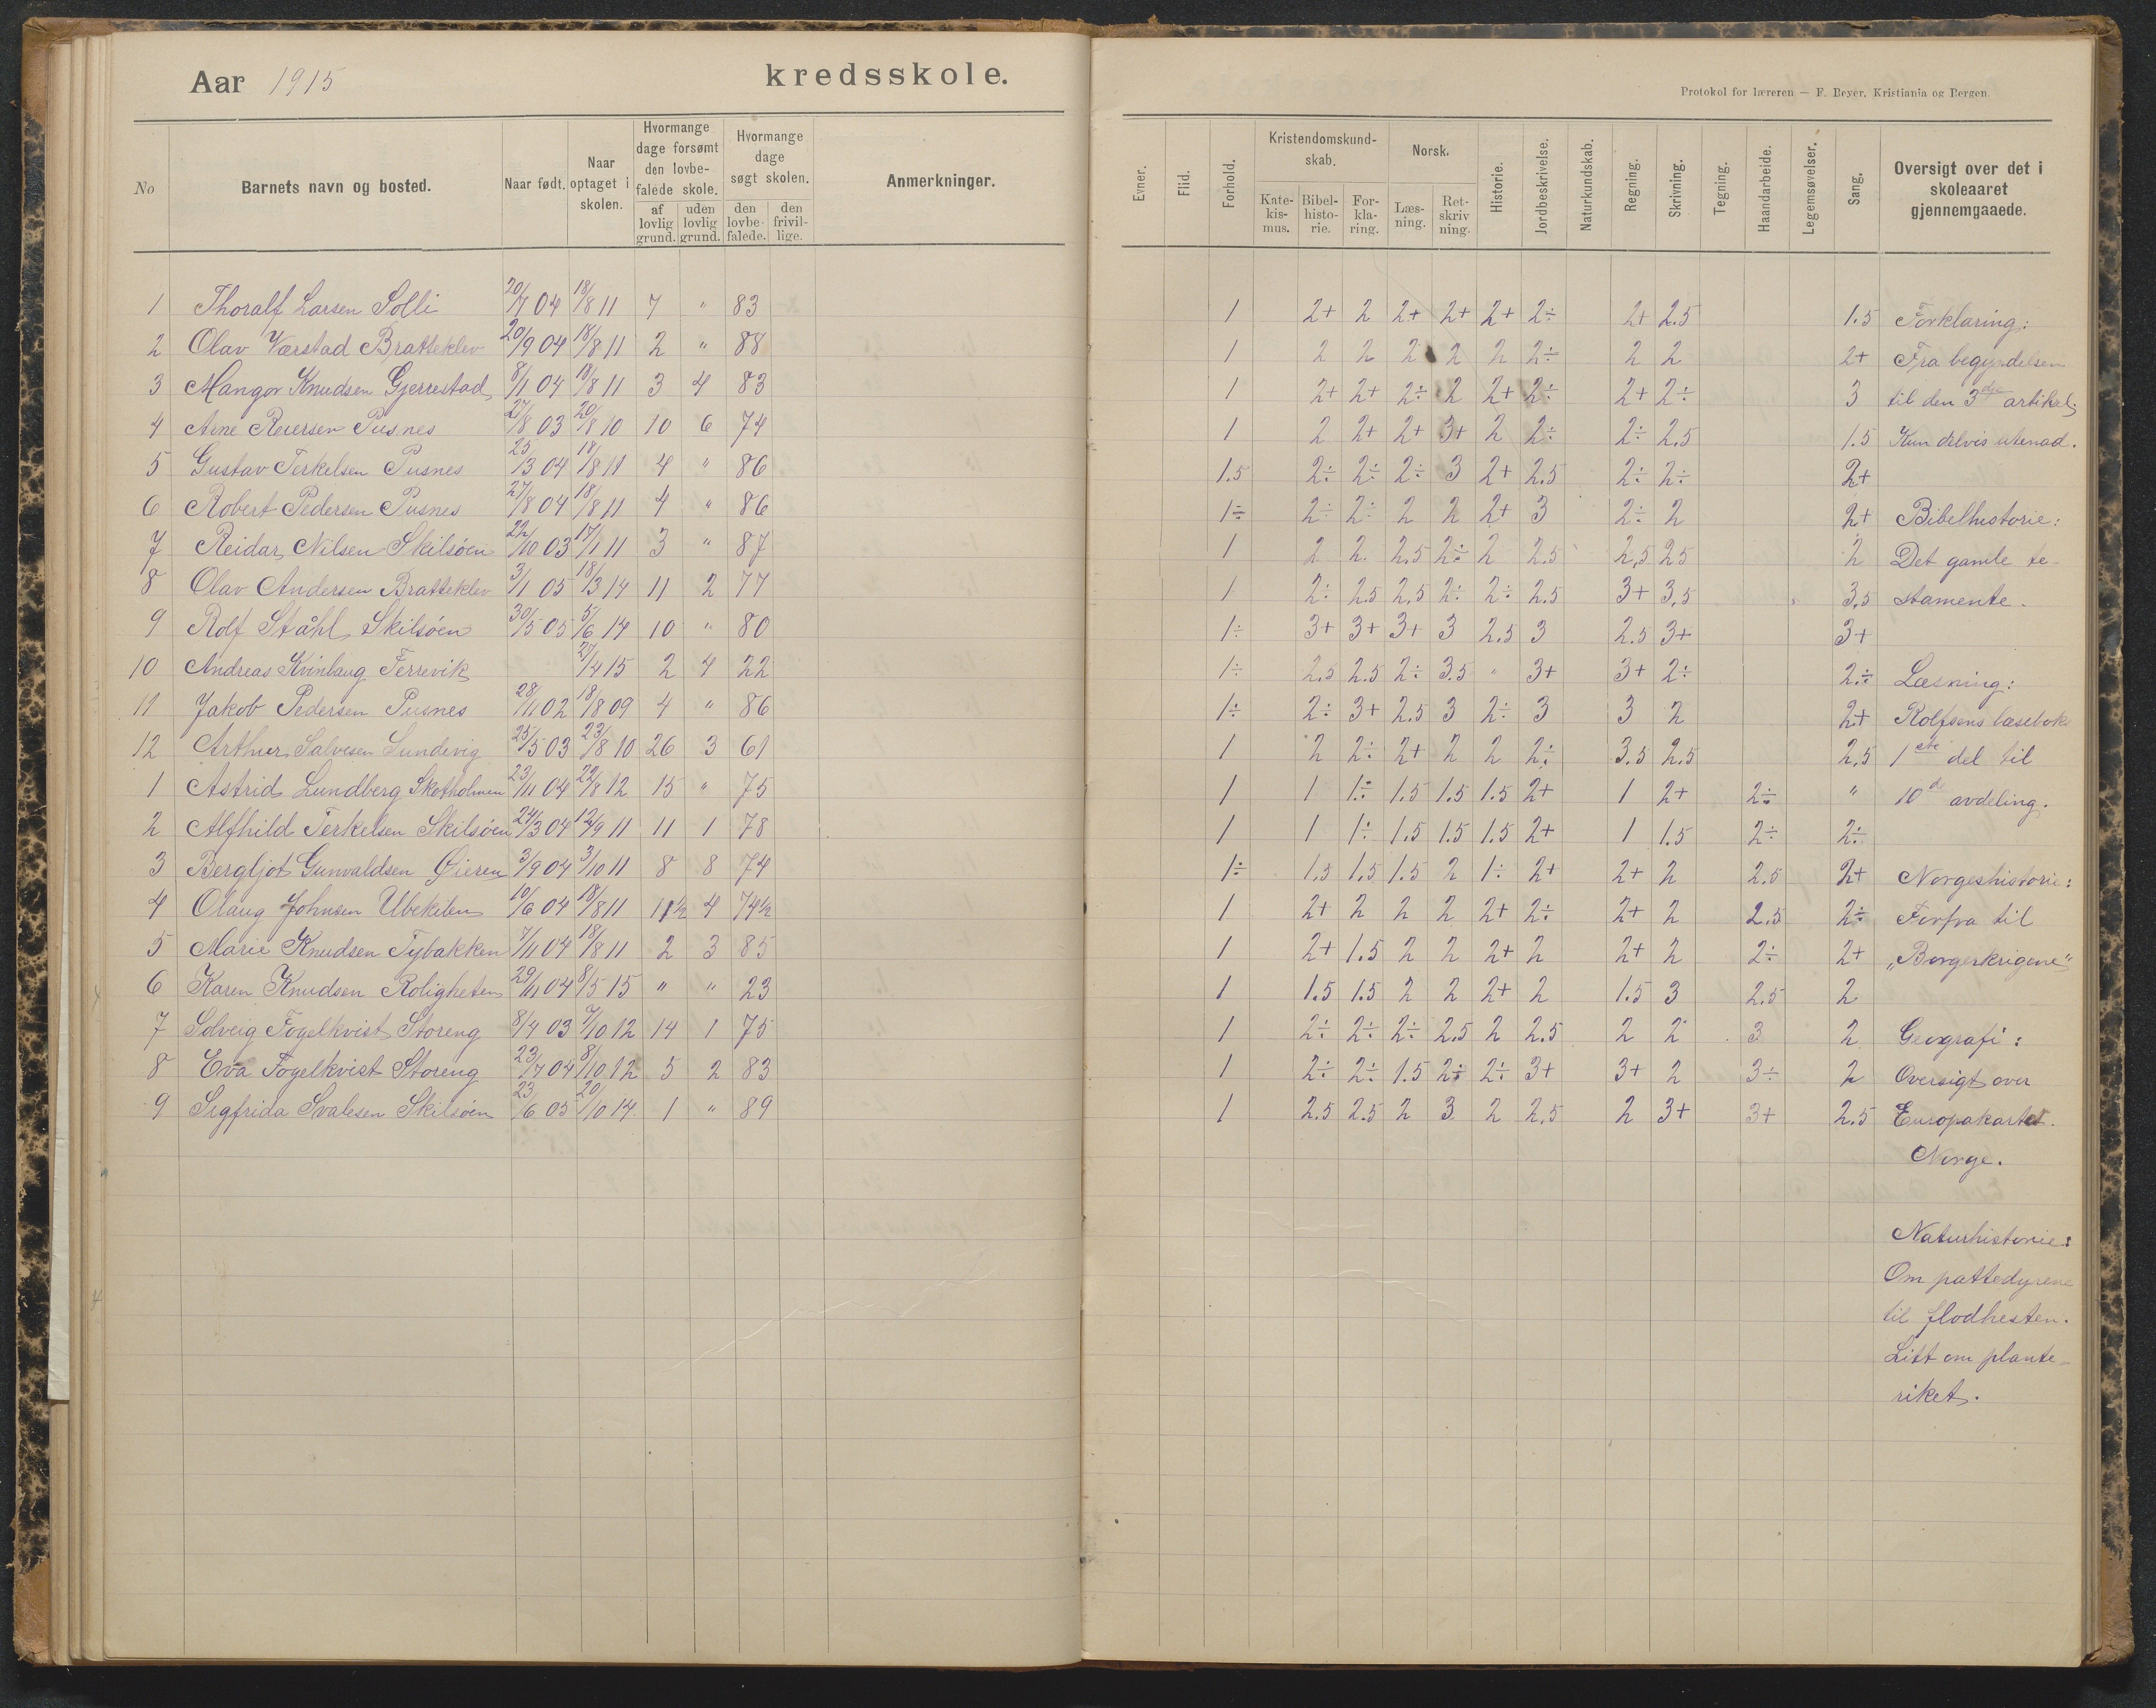 Aar 1915 kredsskole.
No Barnets navn og bosted. Naar født. Naar optaget i skolen. Hvormange dage forsømt den lovbefalede skole. af lovlig grund. uden lovlig grund. Hvormange dage søgt skolen. den lovbefalede. den frivillige. Anmerkninger.
1 Thoralf Larsen Solli 20/7 04 18/8 11 7 " 83
2 Olav Værstad Bratteklev 20/9 04 18/8 11 2 " 88
3 Mangor Knudsen Gjerrestad 8/1 04 18/8 11 3 4 83
4 Arne Reiersen Pusnes 27/8 03 20/8 10 10 6 74
5 Gustav Terkelsen Pusnes 25/3 04 18/8 11 4 " 86
6 Robert Pedersen Pusnes 27/8 04 18/8 11 4 " 86
7 Reidar Nilsen Skilsöen 22/10 03 17/1 11 3 " 87
8 Olav Andersen Bratteklev 3/1 05 18/3 14 11 2 77
9 Rolf Ståhl Skilsöen 30/5 05 5/6 14 10 " 80
10 Andreas Kvinlaug Terrevik 27/4 15 2 4 22
11 Jakob Pedersen Pusnes 28/11 02 18/8 09 4 " 86
12 Arthur Salvesen Sundvig 25/5 03 23/8 10 26 3 61
1 Astrid Lundberg Skotholmen 23/11 04 22/8 12 15 " 75
2 Alfhild Terkelsen Skilsöen 24/3 04 12/9 11 11 1 78
3 Bergljot Gunvaldsen Øieren 3/9 04 3/10 11 8 8 74
4 Olaug Johnsen Ubekilen 10/6 04 18/8 11 11½ 4 74½
5 Marie Knudsen Tybakken 7/11 04 18/8 11 2 3 85
6 Karen Knudsen Roligheten 29/11 04 8/5 15 " " 23
7 Solveig Fogelkvist Storeng 8/4 03 7/10 12 14 1 75
8 Eva Fogelkvist Storeng 23/7 04 8/10 12 5 2 83
9 Sigfrida Svalesen Skilsöen 23/6 05 20/10 14 1 " 89
Protokol for læreren — F. Beyer, Kristiania og Bergen.
Evner. Flid. Forhold. Kristendomskundskab. Katekismus. Bibelhistorie. Forklaring. Norsk. Læsning. Retskrivning. Historie. Jordbeskrivelse. Naturkundskab. Regning. Skrivning. Tegning. Haandarbeide. Legemsøvelser. Sang. Oversigt over det i skoleaaret gjennemgaaede.
1 2+ 2 2+ 2+ 2+ 2÷ 2+ 2.5 1.5 Forklaring:
1 2 2 2 2 2 2÷ 2 2 2+ Fra begyndelsen
1 2+ 2+ 2÷ 2 2+ 2÷ 2+ 2÷ 3 til den 3die artikel;
1 2 2+ 2+ 3+ 2 2÷ 2÷ 2.5 1.5 Kun delvis utenad.
1.5 2÷ 2÷ 2÷ 3 2+ 2.5 2÷ 2÷ 2+
1÷ 2÷ 2÷ 2 2 2+ 3 2÷ 2 2+ Bibelhistorie:
1 2 2 2.5 2÷ 2 2.5 2,5 2.5 2 Det gamle te-
1 2÷ 2.5 2,5 2÷ 2÷ 2.5 3+ 3,5 3,5 stamente.
1÷ 3+ 3+ 3+ 3 2.5 3 2.5 3+ 3+
1÷ 2.5 2.5 2÷ 3.5 " 3+ 3+ 2÷ 2÷ Læsning:
1÷ 2÷ 3+ 2.5 3 2÷ 3 3 2 2+ Rolfsens læsebok
1 2 2÷ 2+ 2 2 2÷ 3.5 2.5 2,5 1ste del til
1 1 1÷ 1.5 1.5 1.5 2+ 1 2+ 2÷ " 10de avdeling.
1 1 1÷ 1.5 1.5 1.5 2+ 1 1.5 2÷ 2÷
1÷ 1.5 1,5 1.5 2 1÷ 2+ 2+ 2 2.5 2+ Norgeshistorie:
1 2+ 2 2 2 2+ 2÷ 2+ 2 2.5 2÷ Forfra til
1 2+ 1.5 2 2 2+ 2 2+ 2 2÷ 2+ „Borgerkrigene"
1 1.5 1.5 2 2 2+ 2 1.5 3 2.5 2
1 2÷ 2÷ 2÷ 2.5 2 2.5 2 2 3 2 Geografi:
1 2÷ 2÷ 1.5 2÷ 2÷ 3+ 3+ 2 3÷ 2 Oversigt over
1 2.5 2.5 2 3 2 2,5 2 3+ 3+ 2.5 Europakartet.
Norge.
Naturhistorie:
Om pattedyrene
til flodhesten.
Litt om plante-
riket.